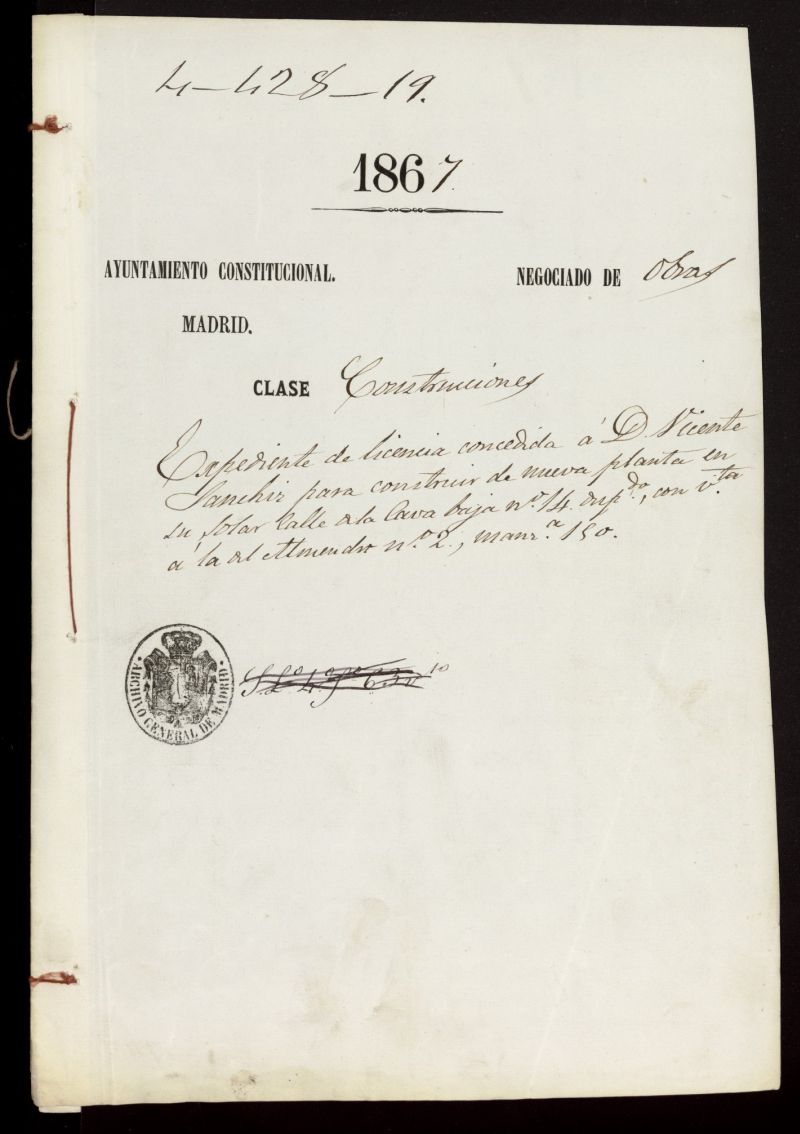 4-428-19.
1867.
AYUNTAMIENTO CONSTITUCIONAL.
NEGOCIADO DE Obras
MADRID.
CLASE Construcciones
Expediente de licencia concedida á D. Vicente
Sanchiz para construir de nueva planta en
su solar Calle de la Cava baja n.º 14. dup.do, con v.ta
á la del Almendro n.º 2., manz.a 150.
ARCHIVO GENERAL DE MADRID